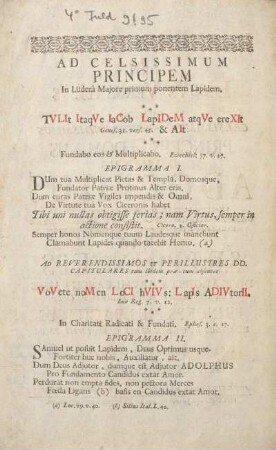 4° Juld 9/95
AD CELSISSIMUM
PRINCIPEM
In Luderâ Majore primum ponentem Lapidem.
TVLIt ItaqVe IaCob LapIDeM atqVe ereXIt
Genes. 31. vers. 45. & AIt
Fundabo eos & Multiplicabo. Ezechiel. 37. v. 26.
EPIGRAMMA I.
DUm tua Multiplicat Pietas & Templa, Domosque,
Fundator Patriæ Protinus Alter eris,
Dum curas Patriæ Vigiles impendis & Omni,
De Virtute tua Vox Ciceronis habet
Tibi uni nullas obtigisse ferias; nam Virtus semper in
actione consistit. Cicero. 2. Officior.
Semper honos Nomenque tuum Laudesque manebunt
Clamabunt Lapides quando tacebit Homo, (a)
Ad REVERENDISSIMOS et PERILLUSTRES DD.
CAPITULARES
VoVete noMen LoCI hVIVs: LapIs ADIVtorII.
1mo Reg. 7. v. 12.
In Charitati Radicati & Fundati. Ephes. 3. v. 17.
EPIGRAMMA II.
SAmuel ut posuit Lapidem, Deus Optimus usque-
Fortiter huc nobis, Auxiliatur, ait.
Dum Deus Adjutor, dumque est Adjutor ADOLPHUS
Pro Fundamento Candidus extat Amor.
Perdurat non empta fides, non pectora Merces
Fæda Ligans (b) basis en Candidus extat Amor.
(a) Luc. 19. v. 40. (b) Silius Ital. L. 02.